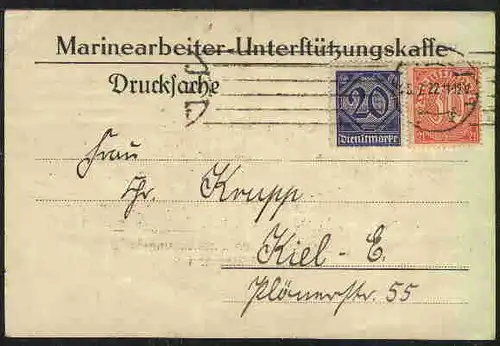 Marinearbeiter-Unterſtützungskaſſe
Druckſache
20
Dienſtmarke
30
22.11-12V
Frau
Chr. Krupp
Kiel - E.
Plönerstr. 55